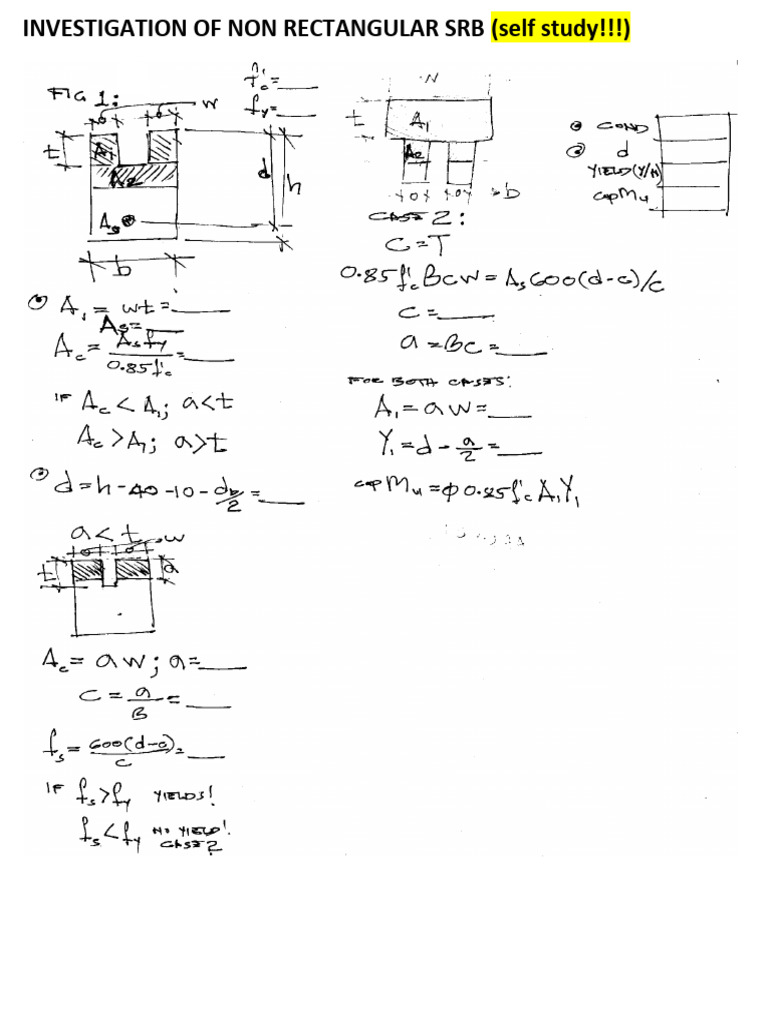 INVESTIGATION OF NON RECTANGULAR SRB (self study!!!)
FIG 1:
w
f'c = ___
fy = ___
t
A1
A2
As
d
h
b
① A1 = wt = ___
As = ___
Ac = As fy / 0.85f'c = ___
IF Ac < A1; a < t
Ac > A1; a > t
② d = h - 40 - 10 - db/2 = ___
a < t
w
t
a
Ac = aw; a = ___
c = a/B = ___
fs = 600(d-c)/c = ___
IF fs > fy YIELDS!
fs < fy NO YIELD!
CASE 2
W
t
A1
A2
b
CASE 2:
C = T
0.85f'c Bcw = As 600(d-c)/c
c = ___
a = Bc = ___
FOR BOTH CASES:
A1 = aw = ___
Y1 = d - a/2 = ___
cap Mu = φ 0.85f'c A1Y1
① COND
② d
YIELD (Y/N)
cap Mu